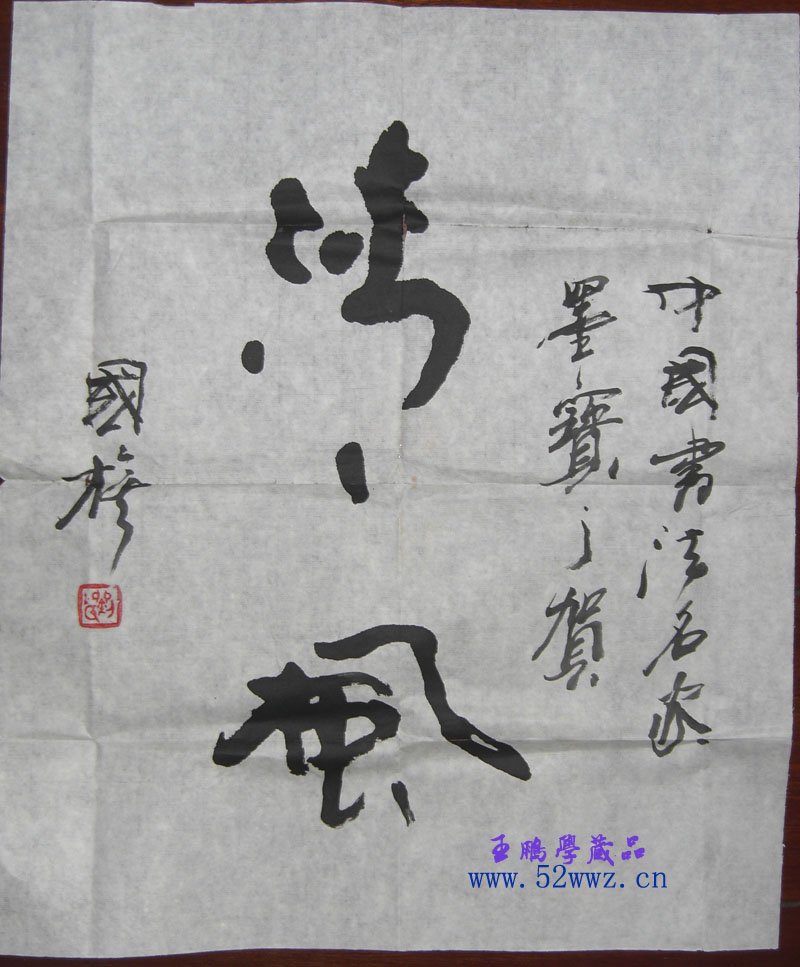 中國書法名家
墨寶之賀
清風
國
王鵬學藏品
www.52wwz.cn